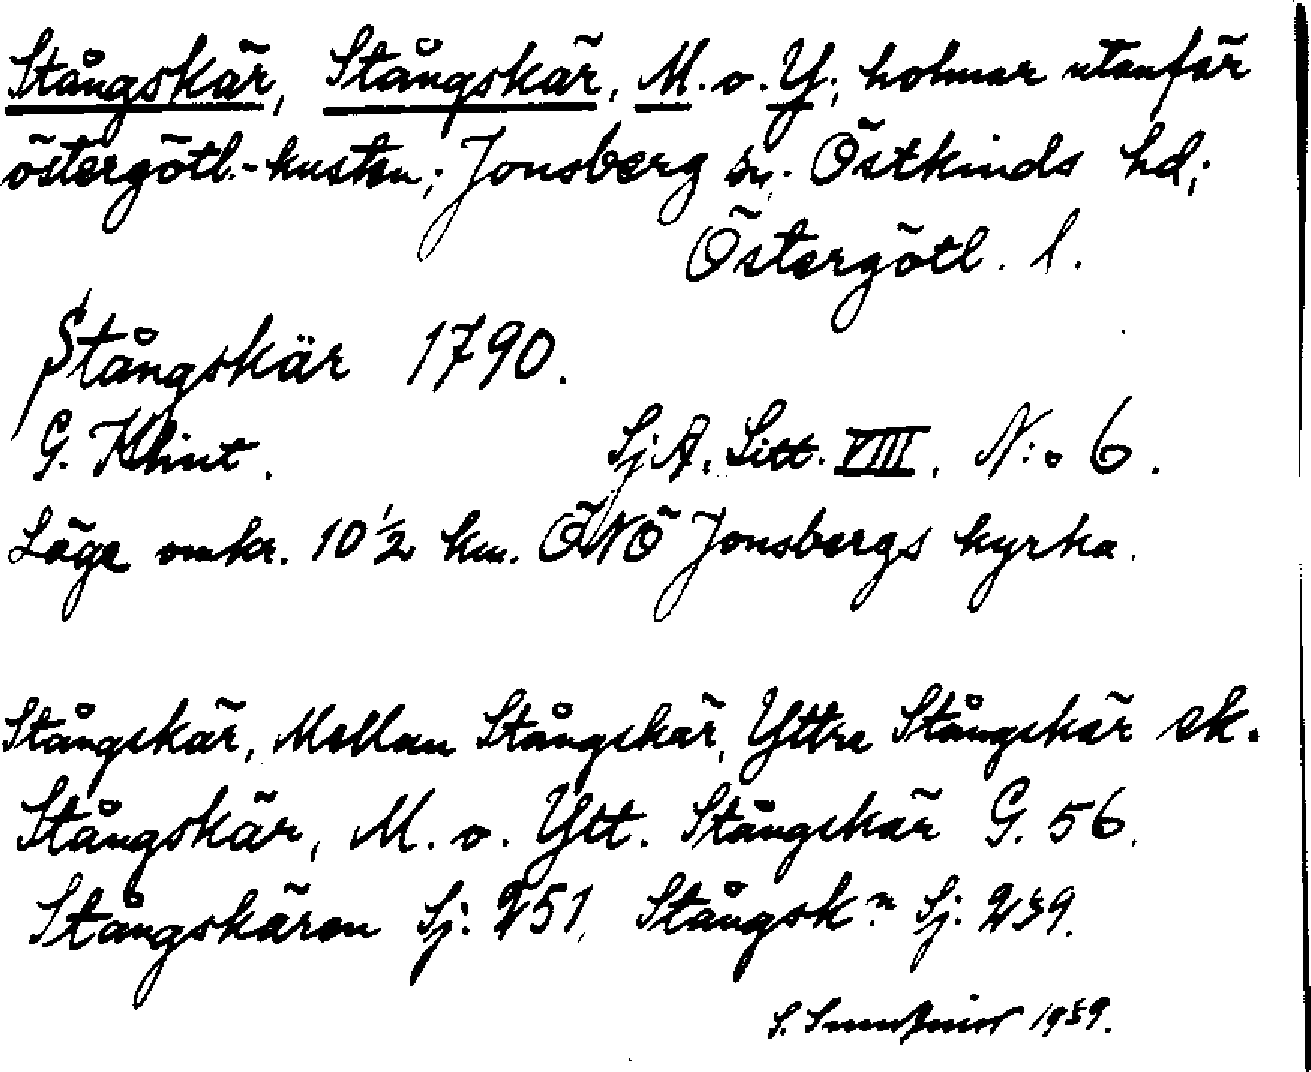 Stångskär, Stångskär, M. o. Y; holmar utanför
östergötl.-kusten; Jonsberg sn; Östkinds hd;
Östergötl. l.
Stångskär 1790.
G. Klint. SjA. Litt. VIII. N:o 6.
Läge omkr. 10 1/2 km. ÖNÖ Jonsbergs kyrka.
Stångskär, Mellan Stångskär, Yttre Stångskär ek.
Stångskär, M. o. Ytt. Stångskär G. 56.
Stångskären Sj: 251, Stångskn Sj: 239.
S. 1939.